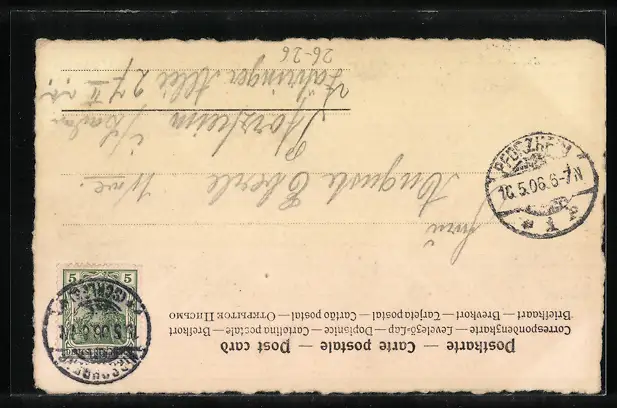 Postkarte — Carte postale — Post card
Correspondenzkarte — Levelező-Lap — Dopisnice — Cartolina postale — Brefkort
Briefkaart — Brevkort — Cartão postal — Tarjeta postal — ОТКРЫТОЕ ПИСЬМО
Frau
Auguste Eberle Wwe.
Pforzheim
Zähringer Allee 27 II
26-26
5 5
PFORZHEIM
16.5.06.6-7N
* 1 P